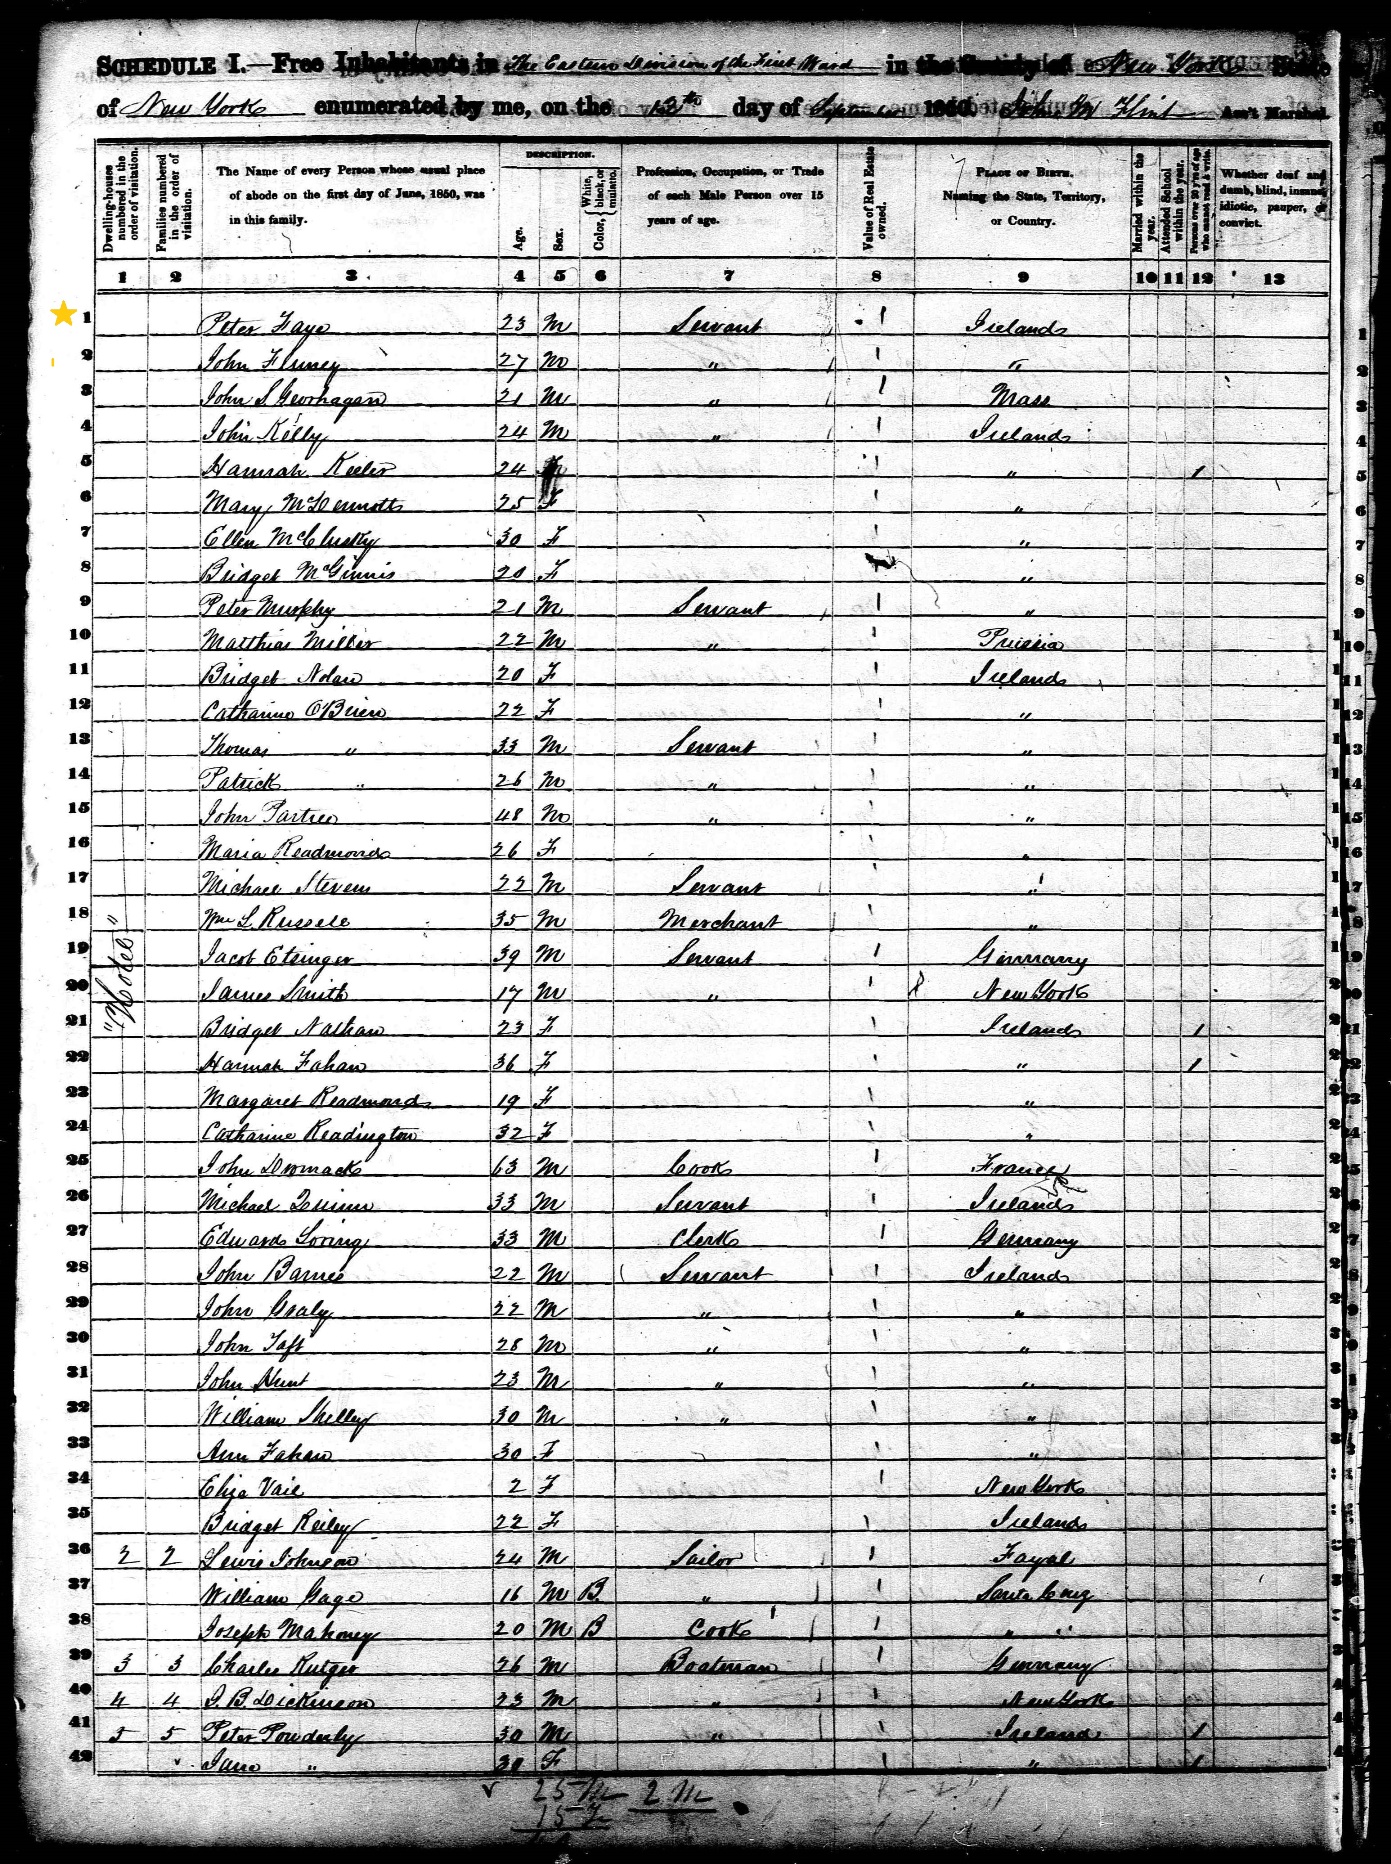 SCHEDULE I.—Free Inhabitants in The Eastern Division of the First Ward in the County of New York State
of New York enumerated by me, on the 13th day of September 1850. John M Flint Ass't Marshal.
Dwelling-houses numbered in the order of visitation. Families numbered in the order of visitation. The Name of every Person whose usual place of abode on the first day of June, 1850, was in this family. DESCRIPTION. Age. Sex. Color, { White, black, or mulatto. Profession, Occupation, or Trade of each Male Person over 15 years of age. Value of Real Estate owned. PLACE OF BIRTH. Naming the State, Territory, or Country. Married within the year. Attended School within the year. Persons over 20 y'rs of age who cannot read & write. Whether deaf and dumb, blind, insane, idiotic, pauper, or convict.
1 2 3 4 5 6 7 8 9 10 11 12 13
1 Peter Faye 23 M Servant Ireland 1
2 John Finney 27 M " " 2
3 John S Geoghagan 21 M " Mass 3
4 John Kelly 24 M " Ireland 4
5 Hannah Keeler 24 " 1 5
6 Mary McDermott 25 F " 6
7 Ellen McClusky 30 F " 7
8 Bridget McGinnis 20 F " 8
9 Peter Murphy 21 M Servant " 9
10 Matthias Miller 22 M " Prussia 10
11 Bridget Nolan 20 F Ireland 11
12 Catharine O'Brien 22 F " 12
13 Thomas " 33 M Servant " 13
14 Patrick " 26 M " " 14
15 John 48 M " " 15
16 Maria Readmond 26 F " 16
17 Michael Stevens 22 M Servant " 17
18 Wm L Russell 35 M Merchant " 18
"Hotel"
19 Jacob Etsinger 39 M Servant Germany 19
20 James Smith 17 M " New York 20
21 Bridget Nathan 23 F Ireland 1 21
22 Hannah Fahan 36 F " 1 22
23 Margaret Readmond 19 F " 23
24 Catharine Readington 32 F " 24
25 John Dromack 63 M Cook France 25
26 Michael Quinn 33 M Servant Ireland
27 Edward Loring 33 M Clerk Germany
28 John Barnes 22 M Servant Ireland
29 John 22 M " "
30 John Taft 28 M " "
31 John Hunt 23 M " "
32 William Shelley 30 M " "
33 Ann Fahan 30 F "
34 Eliza Vail 2 F New York
35 Bridget Reiley 22 F Ireland
36 2 2 Lewis Johnson 24 M Sailor Fayal
37 William Gage 16 M B " Santa Cruz
38 Joseph Mahoney 20 M B Cook " "
39 3 3 Charles Rutger 26 M Boatman Germany
40 4 4 J. B. Dickinson 23 M " New York
41 5 5 Peter Powderly 30 M " Ireland 1
42 Jane " 30 F " 1
25 M 2 M
15 F